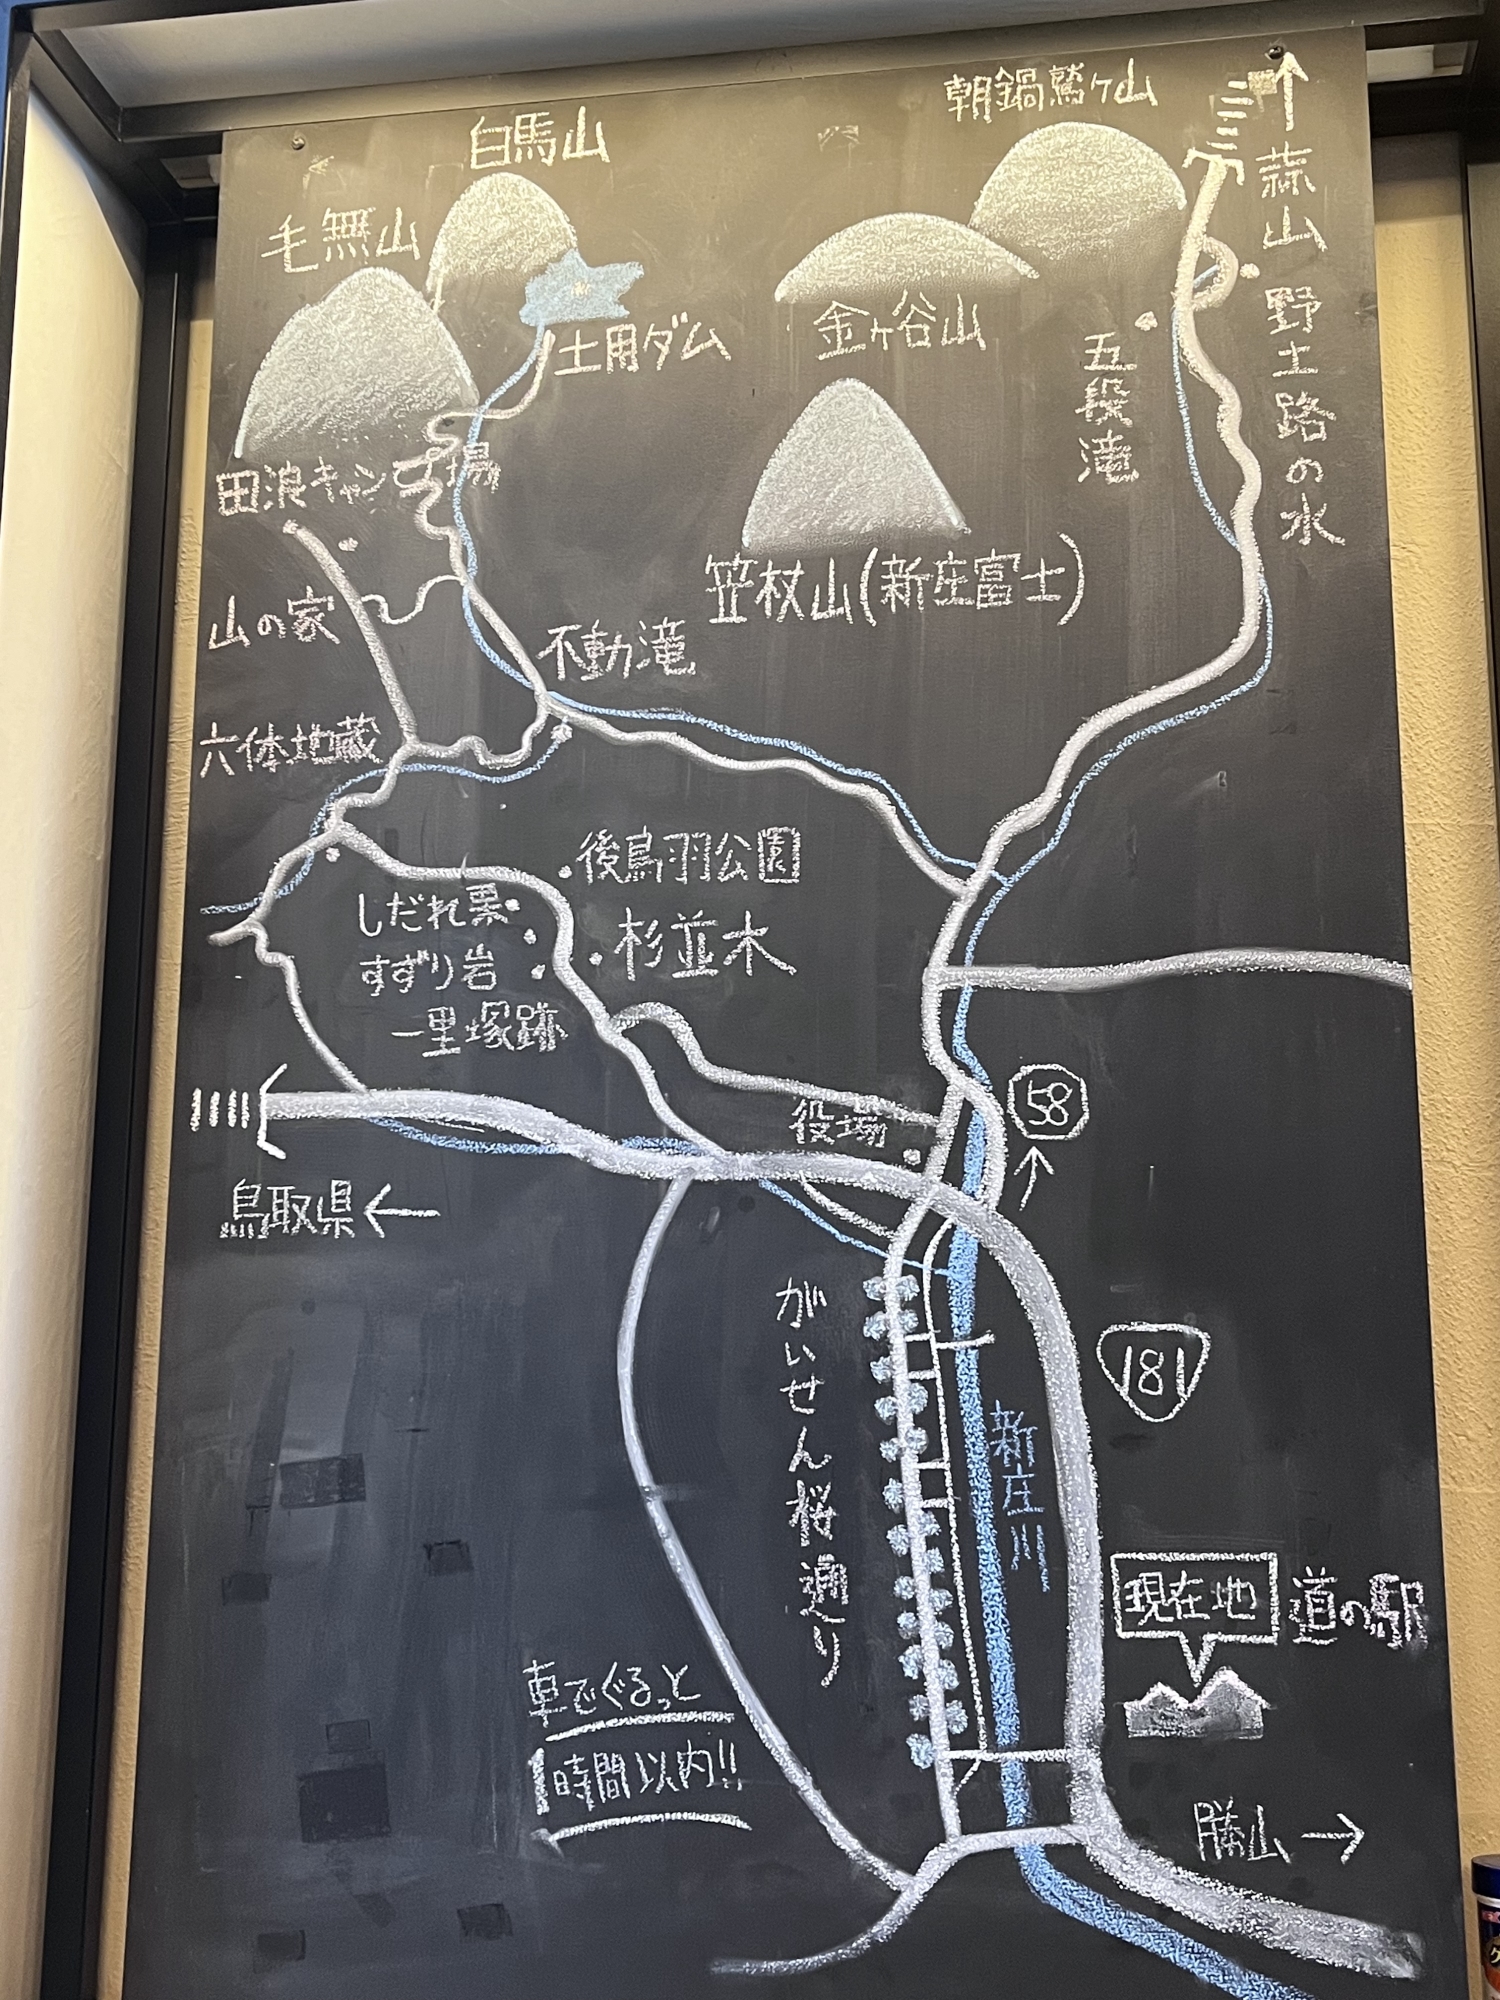 朝鍋鷲ヶ山
白馬山
蒜山
毛無山
野土路の水
金ヶ谷山
土用ダム
五段滝
田浪キャンプ場
笠杖山(新庄富士)
山の家
不動滝
六体地蔵
後鳥羽公園
しだれ栗
杉並木
すずり岩
一里塚跡
58
役場
鳥取県←
がいせん桜通り
181
新庄川
現在地
道の駅
車でぐるっと
1時間以内!!
勝山→